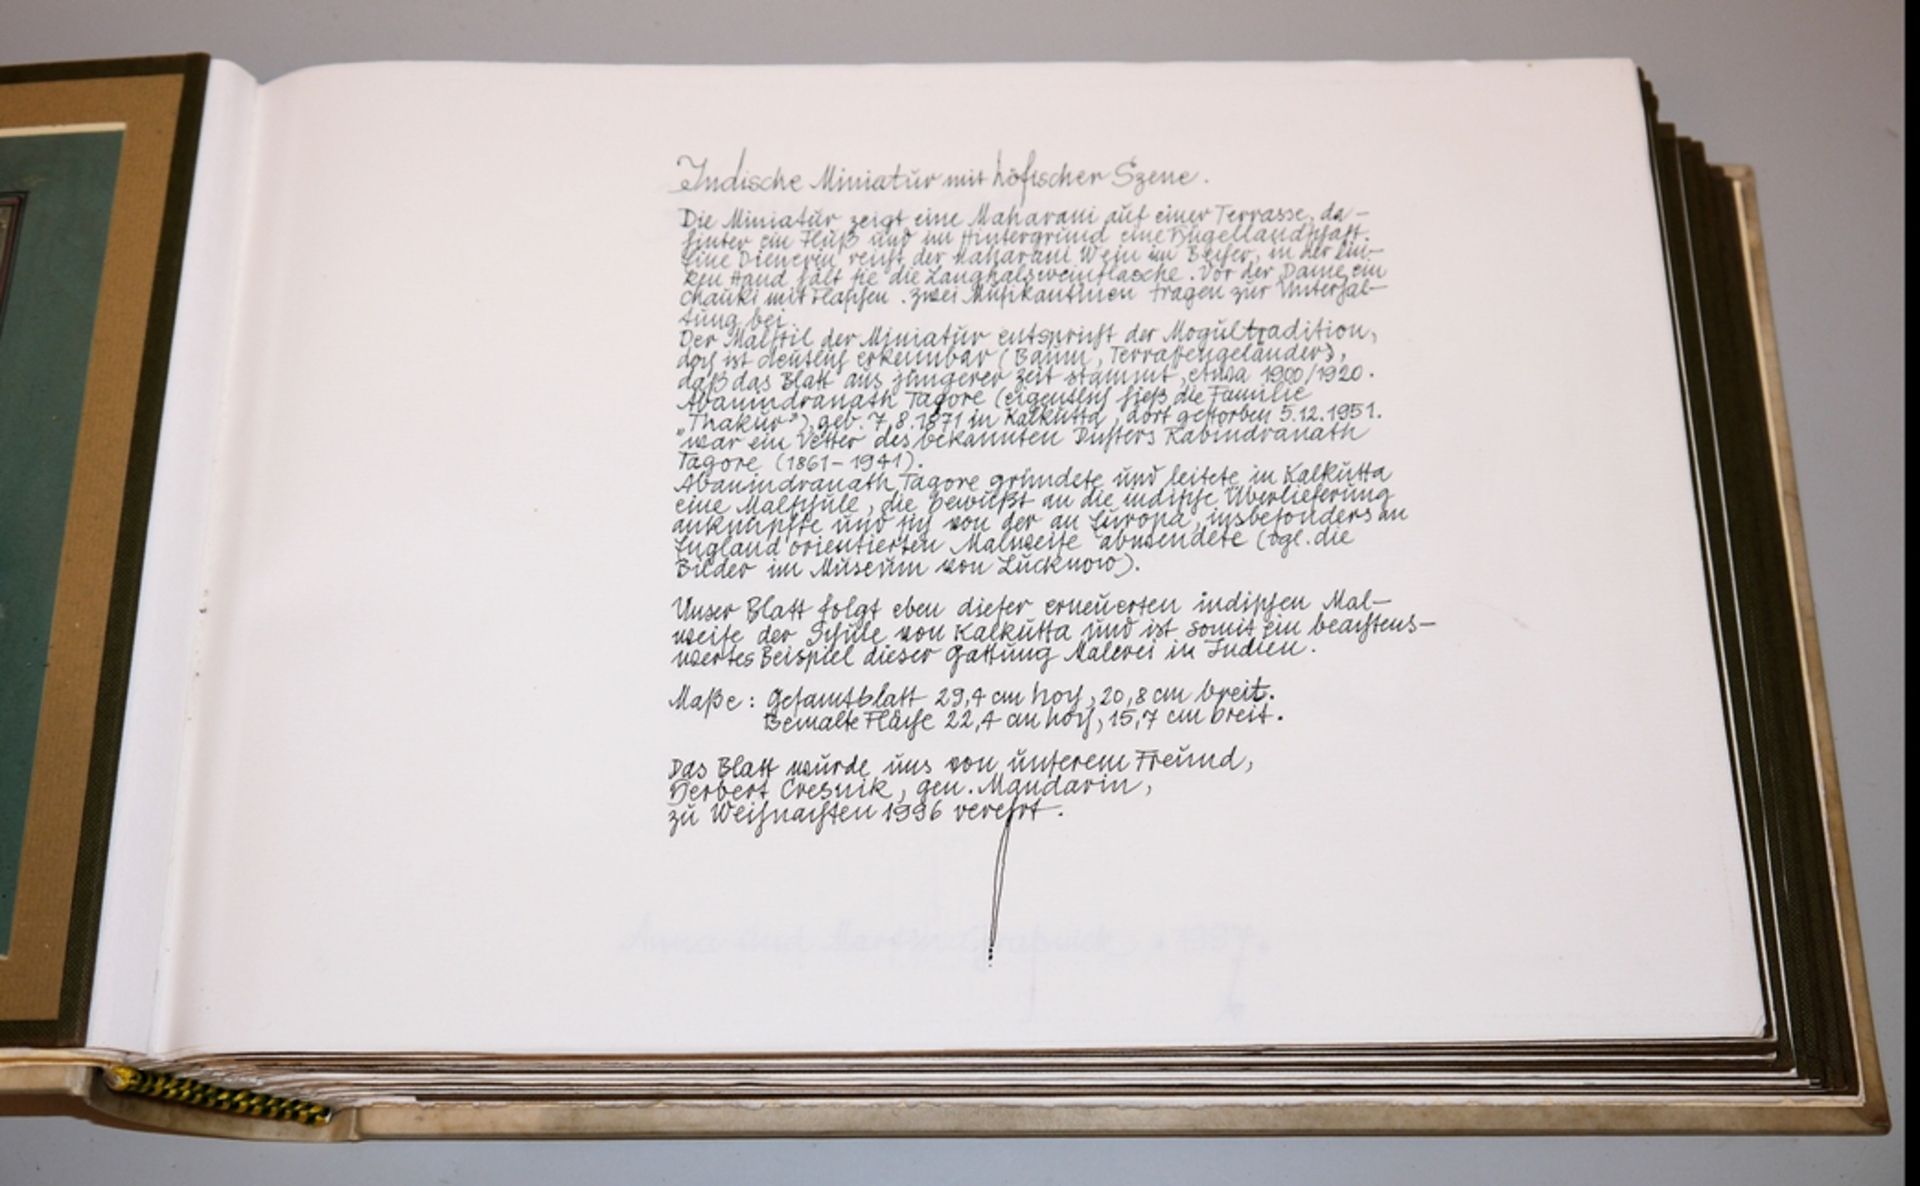 Indische Miniatur mit höfischer Szene.
Die Miniatur zeigt eine Maharani auf einer Terrasse, da-
hinter ein Fluß und im Hintergrund eine Hügellandschaft.
Eine Dienerin reicht der Maharani Wein im Becher, in der lin-
ken Hand hält sie die Langhalsweinflasche. Vor der Dame ein
chauki mit Flaschen. Zwei Musikantinnen tragen zur Unterhal-
tung bei.
Der Malstil der Miniatur entspricht der Mogultradition,
doch ist deutlich erkennbar (Baum, Terrassengeländer),
daß das Blatt aus jüngerer Zeit stammt, etwa 1900/1920.
Abanindranath Tagore (eigentlich hieß die Familie
„Thakur"), geb. 7.8.1871 in Kalkutta, dort gestorben 5.12.1951.
war ein Vetter des bekannten Dichters Rabindranath
Tagore (1861-1941).
Abanindranath Tagore gründete und leitete in Kalkutta
eine Malschule, die bewußt an die indische Überlieferung
anknüpfte und sich von der an Europa, insbesonders an
England orientierten Malweise abwendete (vgl. die
Bilder im Museum von Lucknow).
Unser Blatt folgt eben dieser erneuerten indischen Mal-
weise der Schule von Kalkutta und ist somit ein beachtens-
wertes Beispiel dieser Gattung Malerei in Indien.
Maße: Gesamtblatt 29,4 cm hoch, 20,8 cm breit.
Bemalte Fläche 22,4 cm hoch, 15,7 cm breit.
Das Blatt wurde uns von unserem Freund,
Herbert Cresnik, gen. Mandarin,
zu Weihnachten 1996 verehrt.